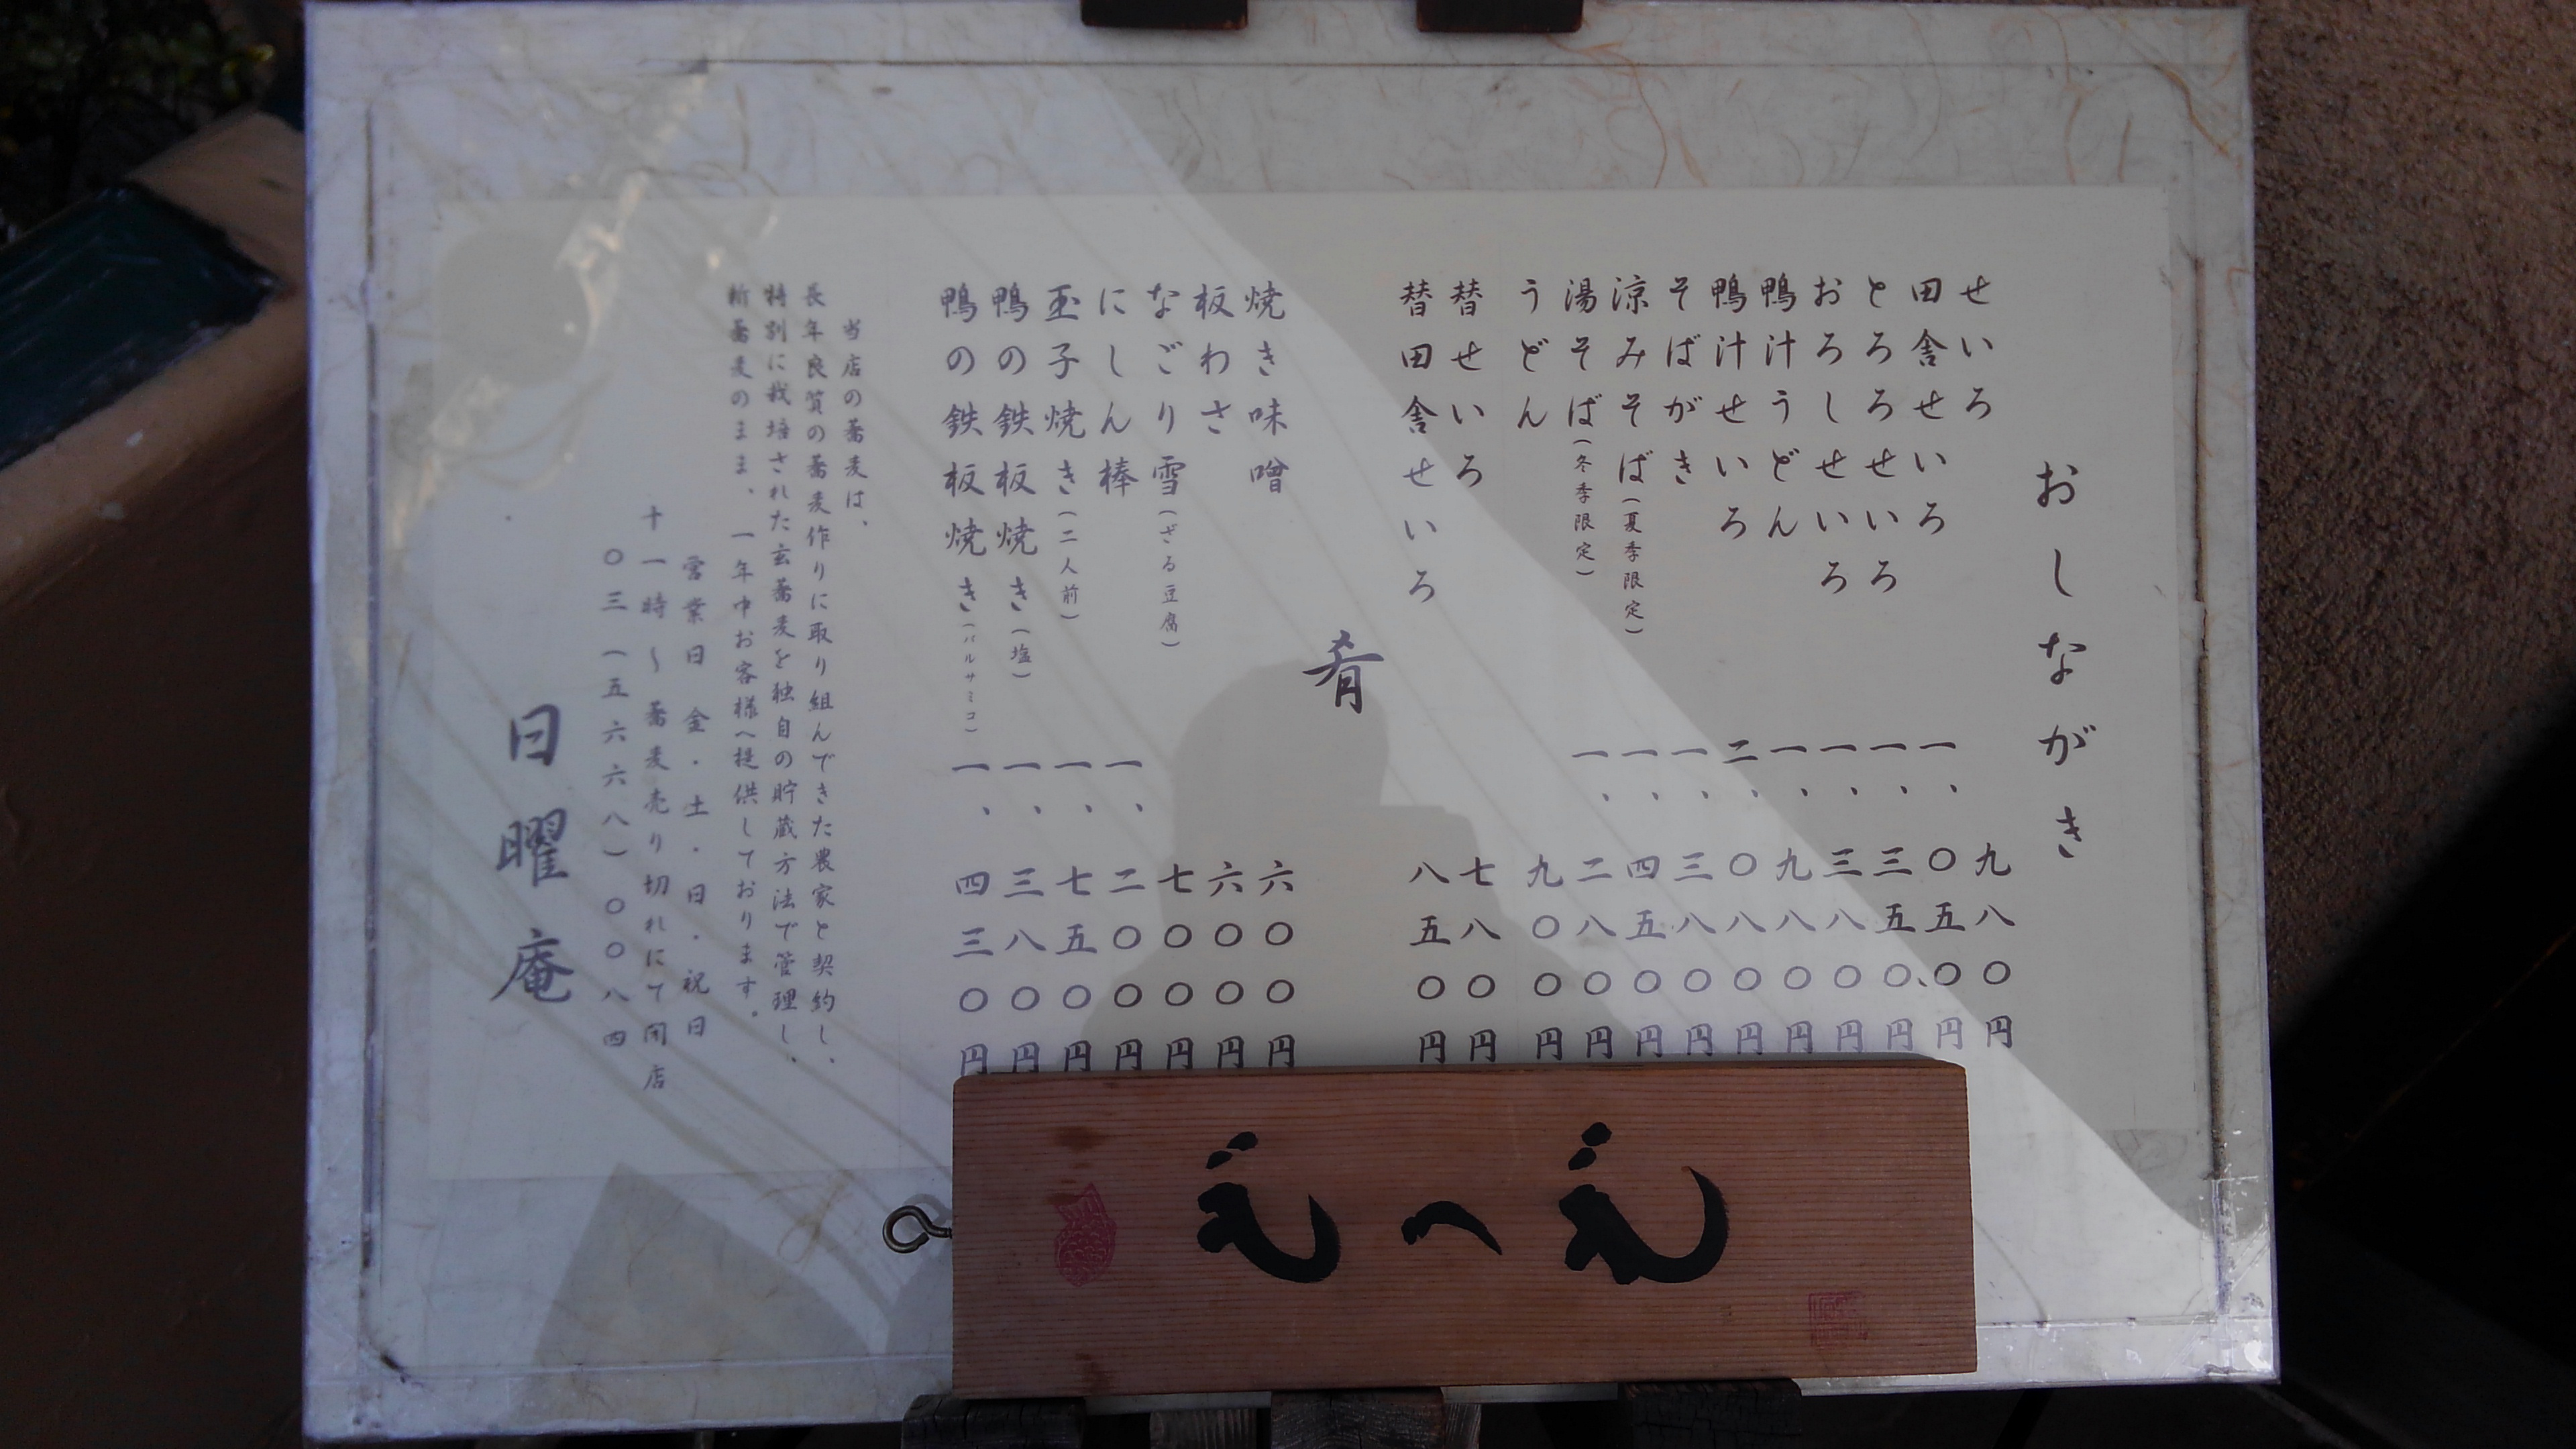 おしながき
せいろ 九八〇円
田舎せいろ 一、〇五〇円
とろろせいろ 一、三五〇円
おろしせいろ 一、三八〇円
鴨汁うどん 一、九八〇円
鴨汁せいろ 二、〇八〇円
そばがき 一、三八〇円
涼みそば(夏季限定) 一、四五〇円
湯そば(冬季限定) 一、二八〇円
うどん 九〇〇円
替せいろ 七八〇円
替田舎せいろ 八五〇円
肴
焼き味噌 六〇〇円
板わさ 六〇〇円
なごり雪(ざる豆腐) 七〇〇円
にしん棒 一、二〇〇円
玉子焼き(二人前) 一、七五〇円
鴨の鉄板焼き(塩) 一、三八〇円
鴨の鉄板焼き(バルサミコ) 一、四三〇円
当店の蕎麦は、
長年良質の蕎麦作りに取り組んできた農家と契約し、
特別に栽培された玄蕎麦を独自の貯蔵方法で管理し、
新蕎麦のまま、一年中お客様へ提供しております。
営業日 金・土・日・祝日
十一時〜蕎麦売り切れにて閉店
〇三(五六六八)〇〇八四
日曜庵